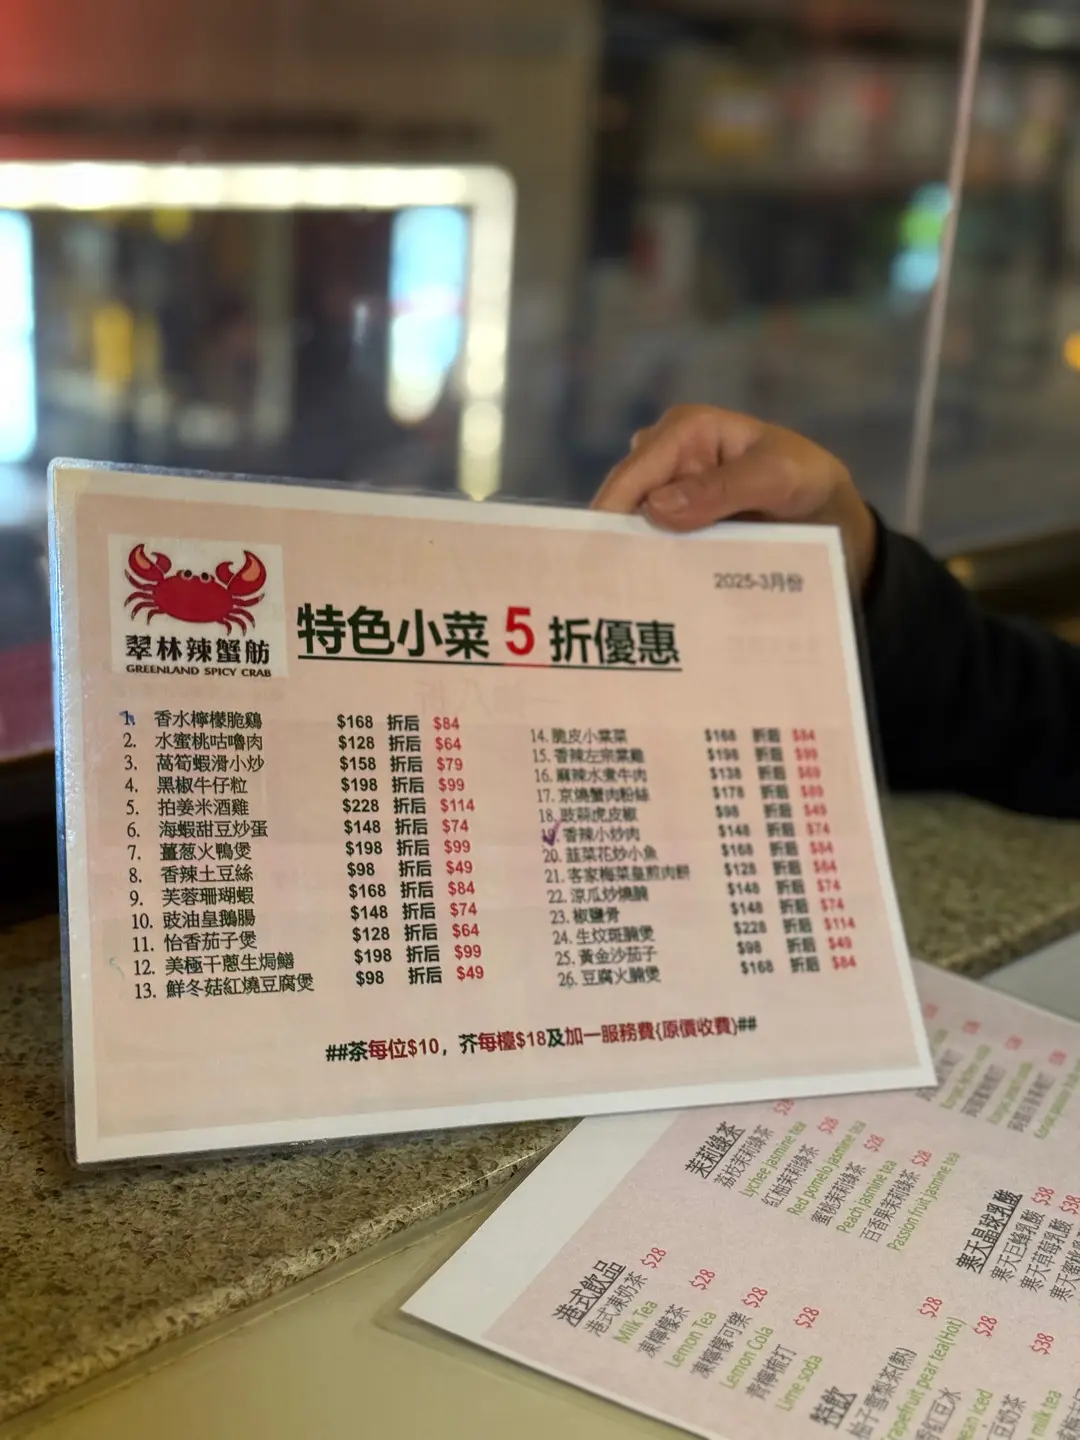 翠林辣蟹舫
GREENLAND SPICY CRAB
2025-3月份
特色小菜 5 折優惠
1. 香水檸檬脆鷄 $168 折后 $84
2. 水蜜桃咕嚕肉 $128 折后 $64
3. 萵筍蝦滑小炒 $158 折后 $79
4. 黑椒牛仔粒 $198 折后 $99
5. 拍姜米酒雞 $228 折后 $114
6. 海蝦甜豆炒蛋 $148 折后 $74
7. 薑葱火鴨煲 $198 折后 $99
8. 香辣土豆絲 $98 折后 $49
9. 芙蓉珊瑚蝦 $168 折后 $84
10. 豉油皇鵝腸 $148 折后 $74
11. 怡香茄子煲 $128 折后 $64
12. 美極干蔥生焗鱔 $198 折后 $99
13. 鮮冬菇紅燒豆腐煲 $98 折后 $49
14. 脆皮小棠菜 $168 折后 $84
15. 香辣左宗棠雞 $198 折后 $99
16. 麻辣水煮牛肉 $138 折后 $69
17. 京燒蟹肉粉絲 $178 折后 $89
18. 豉蒜虎皮椒 $98 折后 $49
19. 香辣小炒肉 $148 折后 $74
20. 韮菜花炒小魚 $168 折后 $84
21. 客家梅菜皇煎肉餅 $128 折后 $64
22. 涼瓜炒燒腩 $148 折后 $74
23. 椒鹽骨 $148 折后 $74
24. 生炆斑腩煲 $228 折后 $114
25. 黃金沙茄子 $98 折后 $49
26. 豆腐火腩煲 $168 折后 $84
##茶每位$10，芥每檯$18及加一服務費{原價收費}##
茉莉綠茶
荔枝茉莉綠茶 $28
Lychee jasmine tea
紅柚茉莉綠茶 $28
Red pomelo jasmine tea
蜜桃茉莉綠茶 $28
Peach jasmine tea
百香果茉莉綠茶 $28
Passion fruit jasmine tea
港式飲品
港式凍奶茶 $28
Milk Tea
凍檸檬茶 $28
Lemon Tea
凍檸檬可樂 $28
Lemon Cola
青檸梳打 $28
Lime soda
寒天晶球乳酸
寒天巨蜂乳酸 $38
寒天草莓乳酸 $38
寒天蜜桃
特飲
柚子雪梨茶(熱) $28
rapefruit pear tea(Hot)
紅豆冰 $28
ean iced
豆奶茶 $38
milk tea